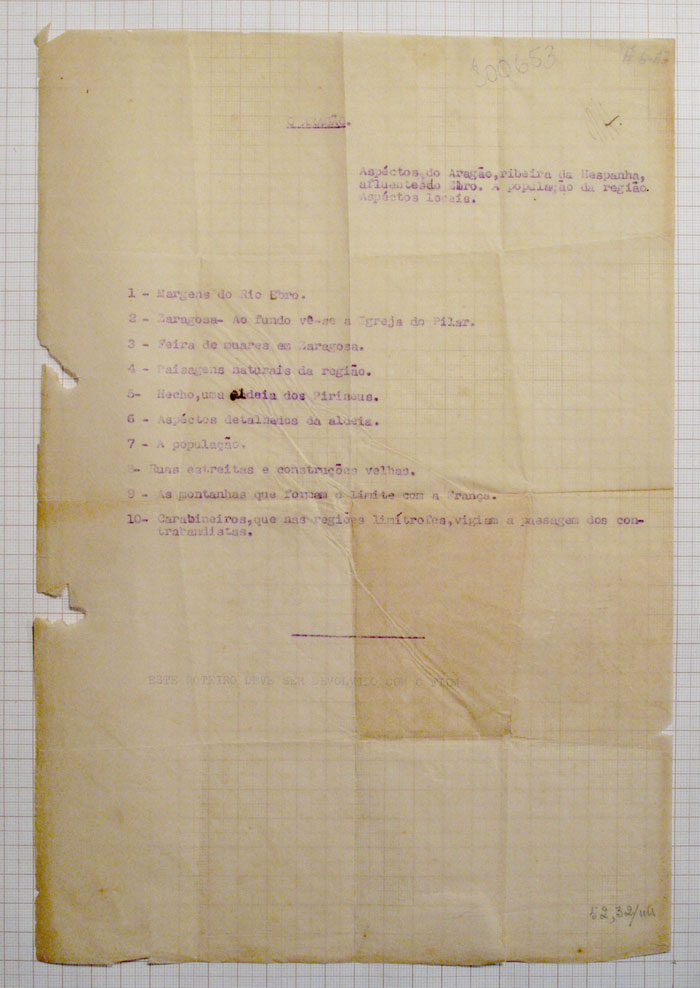 300653
Aspéctos,do Aragão,ribeira da Hespanha,
afluentesdo Ebro. A população da região
Aspéctos locais.
1 - Margens do Rio Ebro.
2 - Zaragosa- Ao fundo vê-se a Igreja do Pilar.
3 - Feira de muares em Zaragosa.
4 - Paisagens naturais da região.
5- Hecho,uma aldeia dos Pirineus.
6 - Aspéctos detalhados da aldeia.
7 - A população.
8- Ruas estreitas e construções velhas.
9 - As montanhas que formam o limite com a França.
10- Carabineiros,que nas regiões limítrofes,vigiam a passagem dos con-
trabandistas.
ESTE ROTEIRO DEVE SER DEVOLVIDO COM O FILM